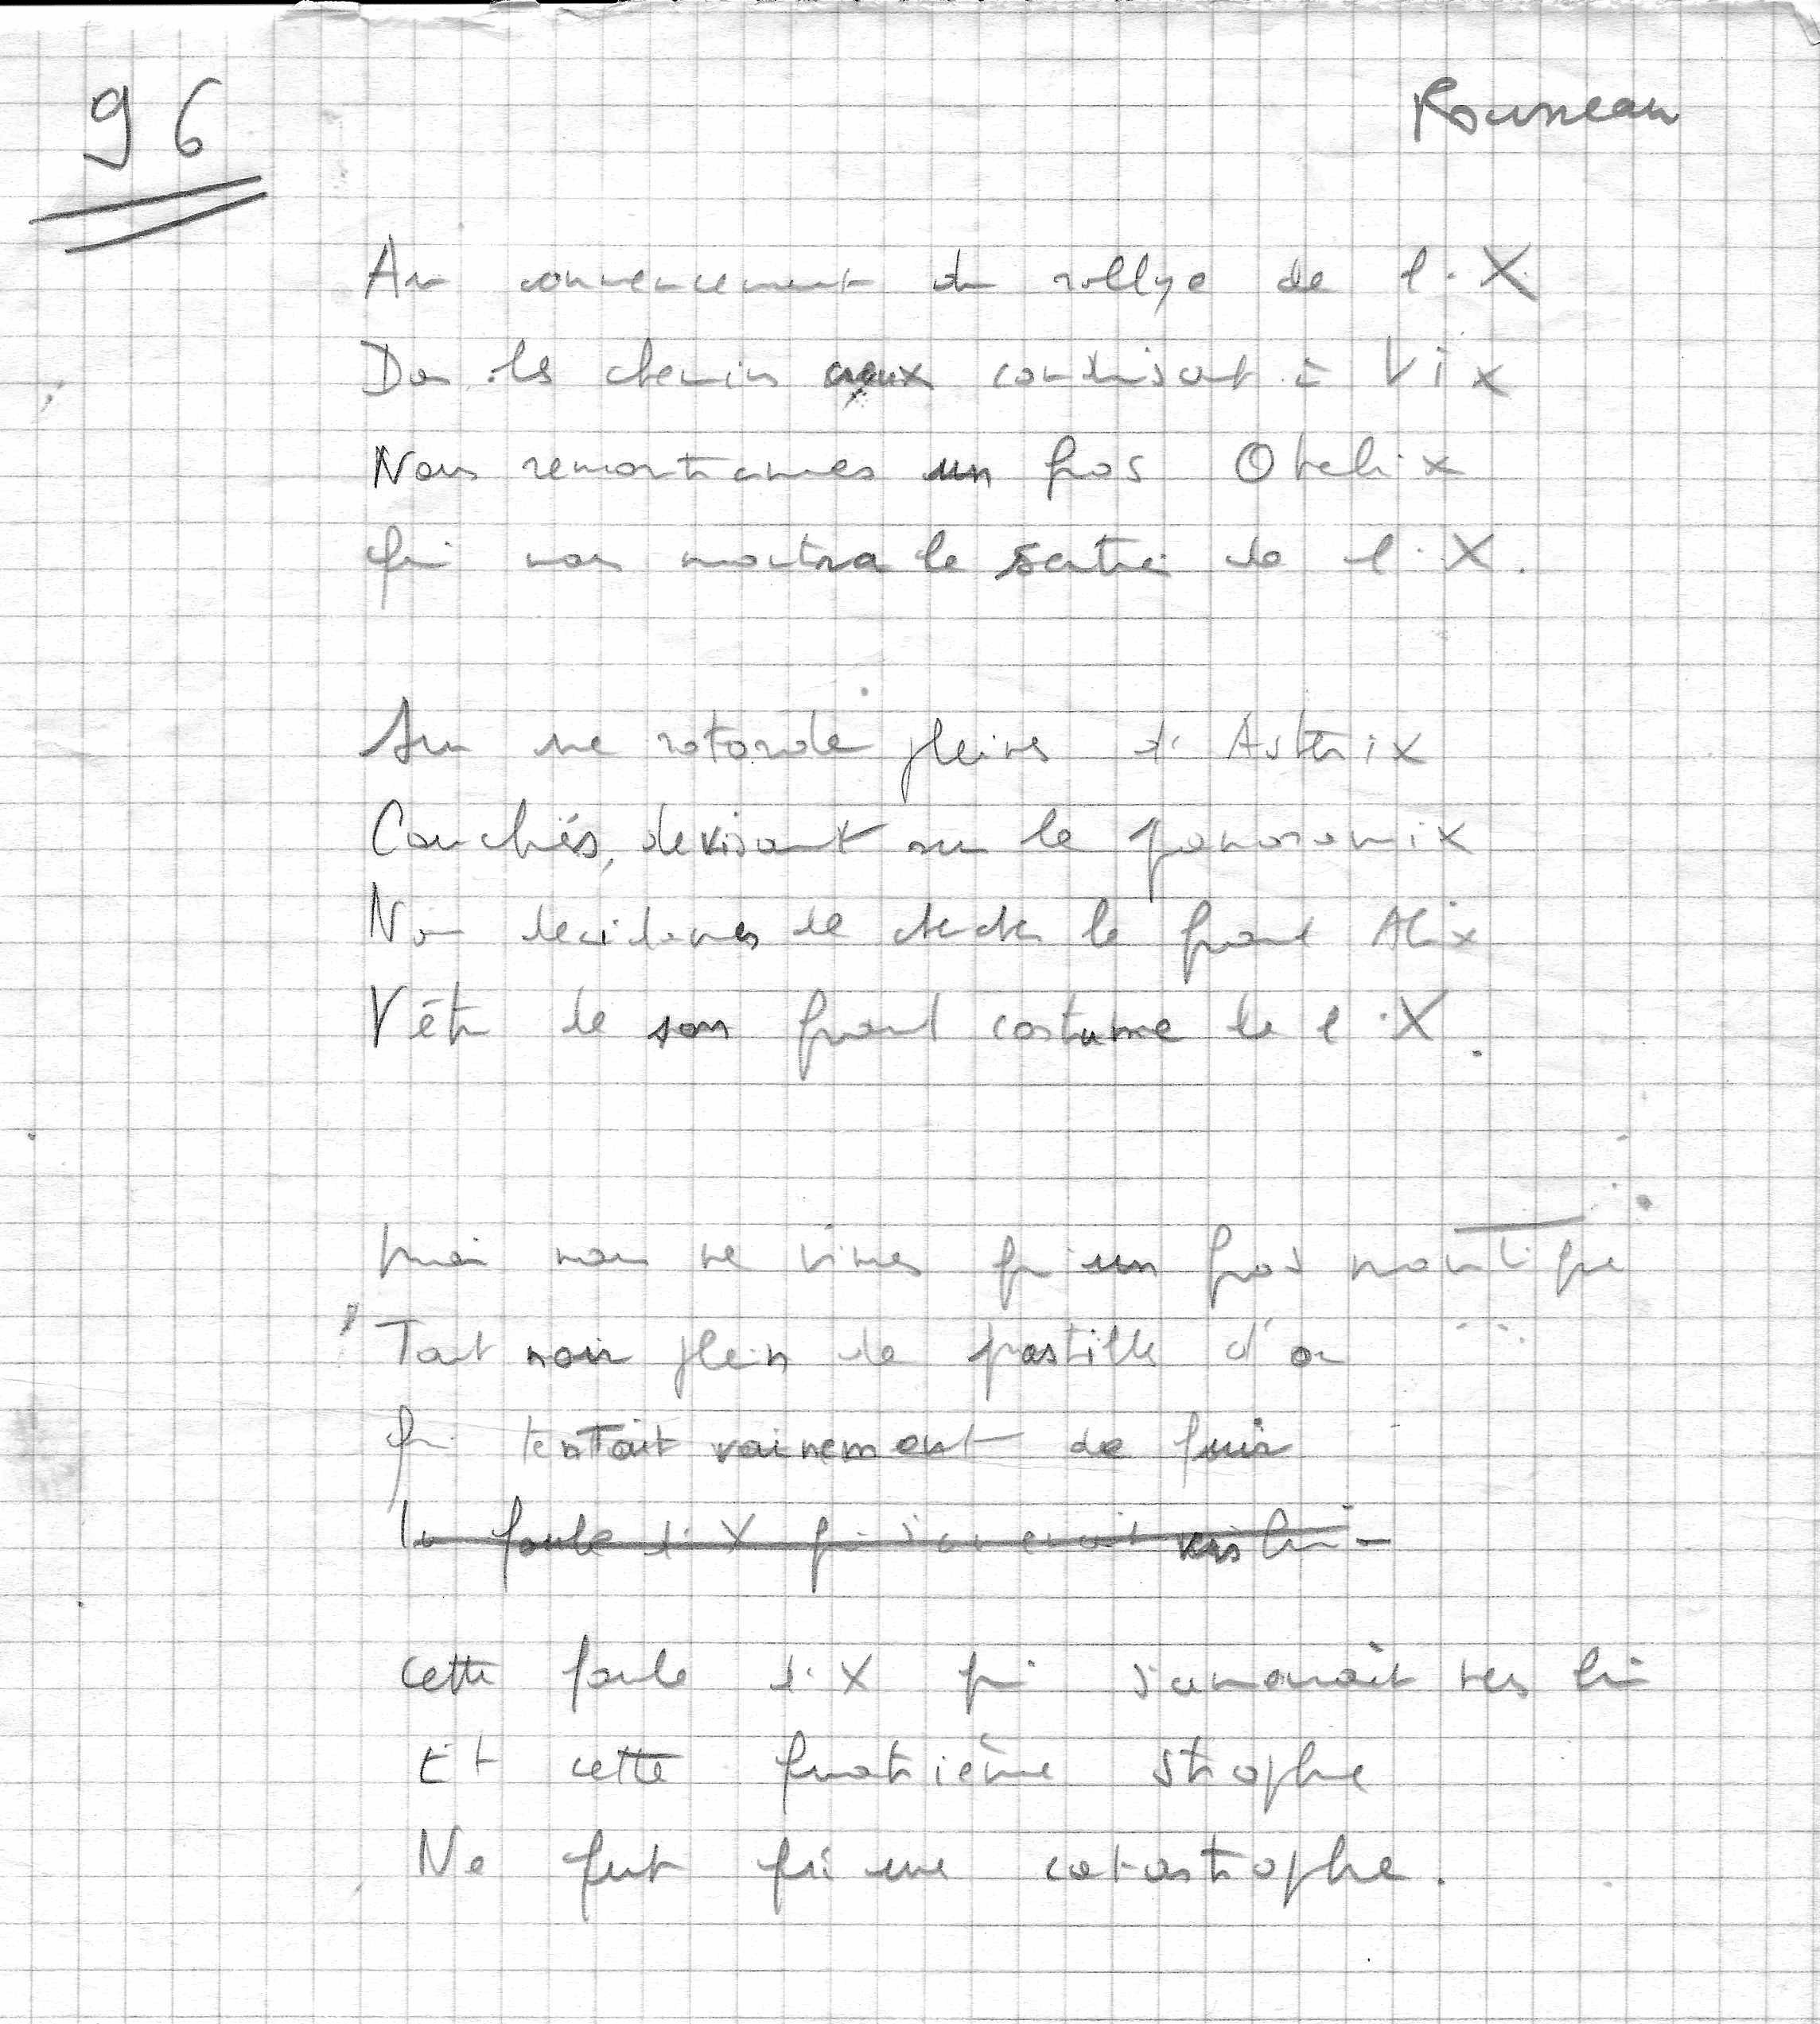 96
Rousseau
Au commencement du rallye de l'X
Dans les chemins creux conduisant à Vix
Nous remontames un gros Obelix
Qui nous montra le sentier de l'X.
Sur une rotonde pleines d'Astérix
Couchés, devisant sur le panoramix
Nous decidames de chercher le grand Alix
Vêtu de son grand costume de l'X.
Mais nous ne vimes qu'un gros moustique
Tout noir plein de pastilles d'or
Qui tentait vainement de fuir
la foule d'X qui s'amenait vers lui
cette foule d'X qui s'amenait vers lui
Et cette quatrième strophe
Ne fut qu'une catastrophe.